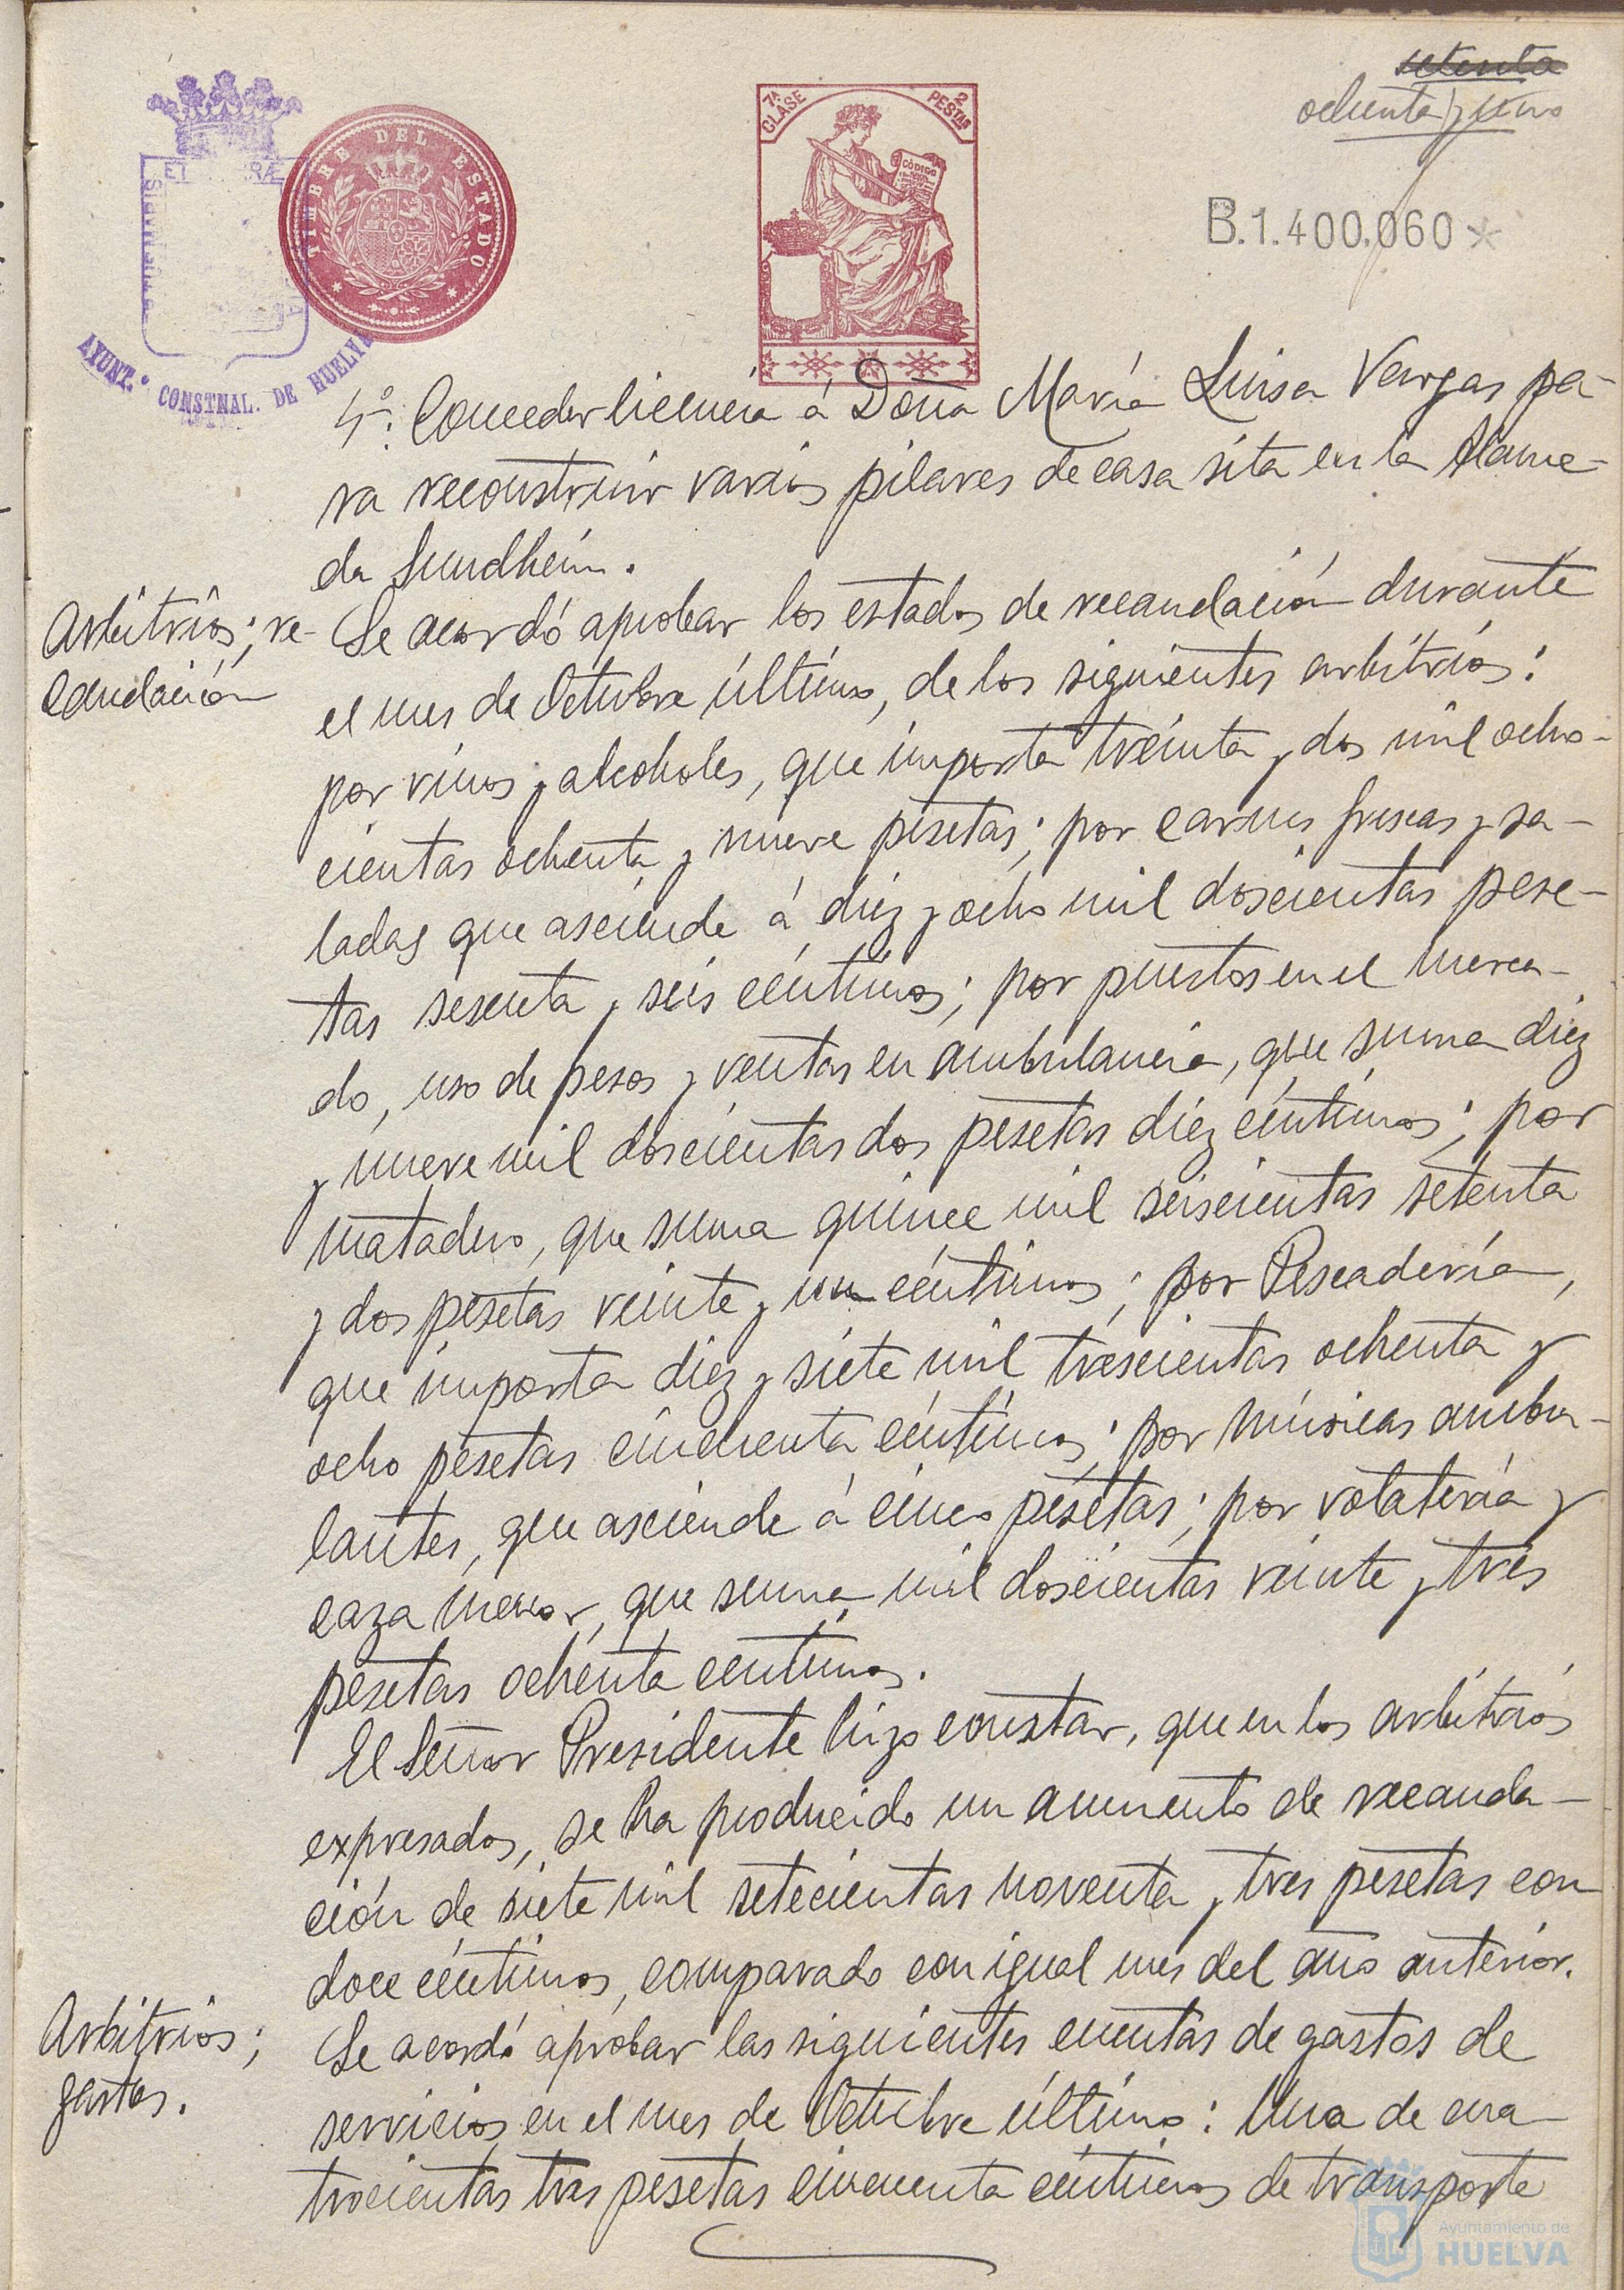 setenta
ochenta y uno
7ª CLASE
2 PESTAS
CÓDIGO
TIMBRE DEL ESTADO
B.1.400.060*
AYUNT.º CONSTNAL. DE HUELVA
4º: Conceder licencia á Doña María Luisa Vargas pa-
ra reconstruir varios pilares de casa sita en la Alame-
da Sundheim.
Arbitrios; re-
caudación
Se acordó aprobar los estados de recaudación durante
el mes de Octubre último, de los siguientes arbitrios:
por vinos y alcoholes, que importa treinta y dos mil ocho-
cientas ochenta y nueve pesetas; por carnes frescas y sa-
ladas que asciende á diez y ocho mil doscientas pese-
tas sesenta y seis céntimos; por puestos en el merca-
do, uso de pesos y ventas en ambulancia, que suma diez
y nueve mil doscientas dos pesetas diez céntimos; por
matadero, que suma quince mil seiscientas setenta
y dos pesetas veinte y un céntimos; por Pescadería,
que importa diez y siete mil trescientas ochenta y
ocho pesetas cincuenta céntimos; por músicas ambu-
lantes, que asciende á cinco pesetas; por volatería y
caza menor, que suma mil doscientas veinte y tres
pesetas ochenta centimos.
El Señor Presidente hizo constar, que en los arbitrios
expresados, se ha producido un aumento de recauda-
ción de siete mil setecientas noventa y tres pesetas con
doce céntimos, comparado con igual mes del año anterior.
Arbitrios;
gastos.
Se acordó aprobar las siguientes cuentas de gastos de
servicios en el mes de Octubre último: Una de cua-
trocientas tres pesetas cincuenta céntimos de transporte
Ayuntamiento de
HUELVA